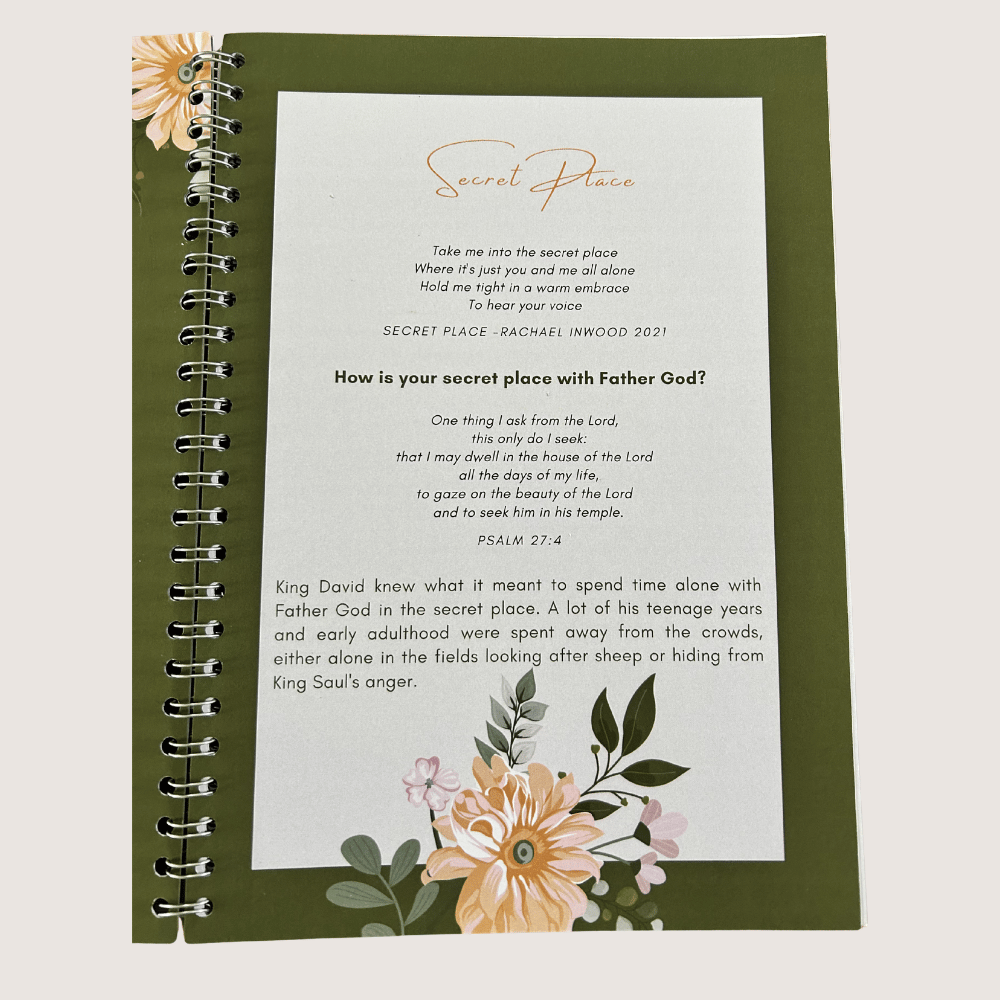 Secret Place
Take me into the secret place
Where it's just you and me all alone
Hold me tight in a warm embrace
To hear your voice
SECRET PLACE -RACHAEL INWOOD 2021
How is your secret place with Father God?
One thing I ask from the Lord,
this only do I seek:
that I may dwell in the house of the Lord
all the days of my life,
to gaze on the beauty of the Lord
and to seek him in his temple.
PSALM 27:4
King David knew what it meant to spend time alone with
Father God in the secret place. A lot of his teenage years
and early adulthood were spent away from the crowds,
either alone in the fields looking after sheep or hiding from
King Saul's anger.